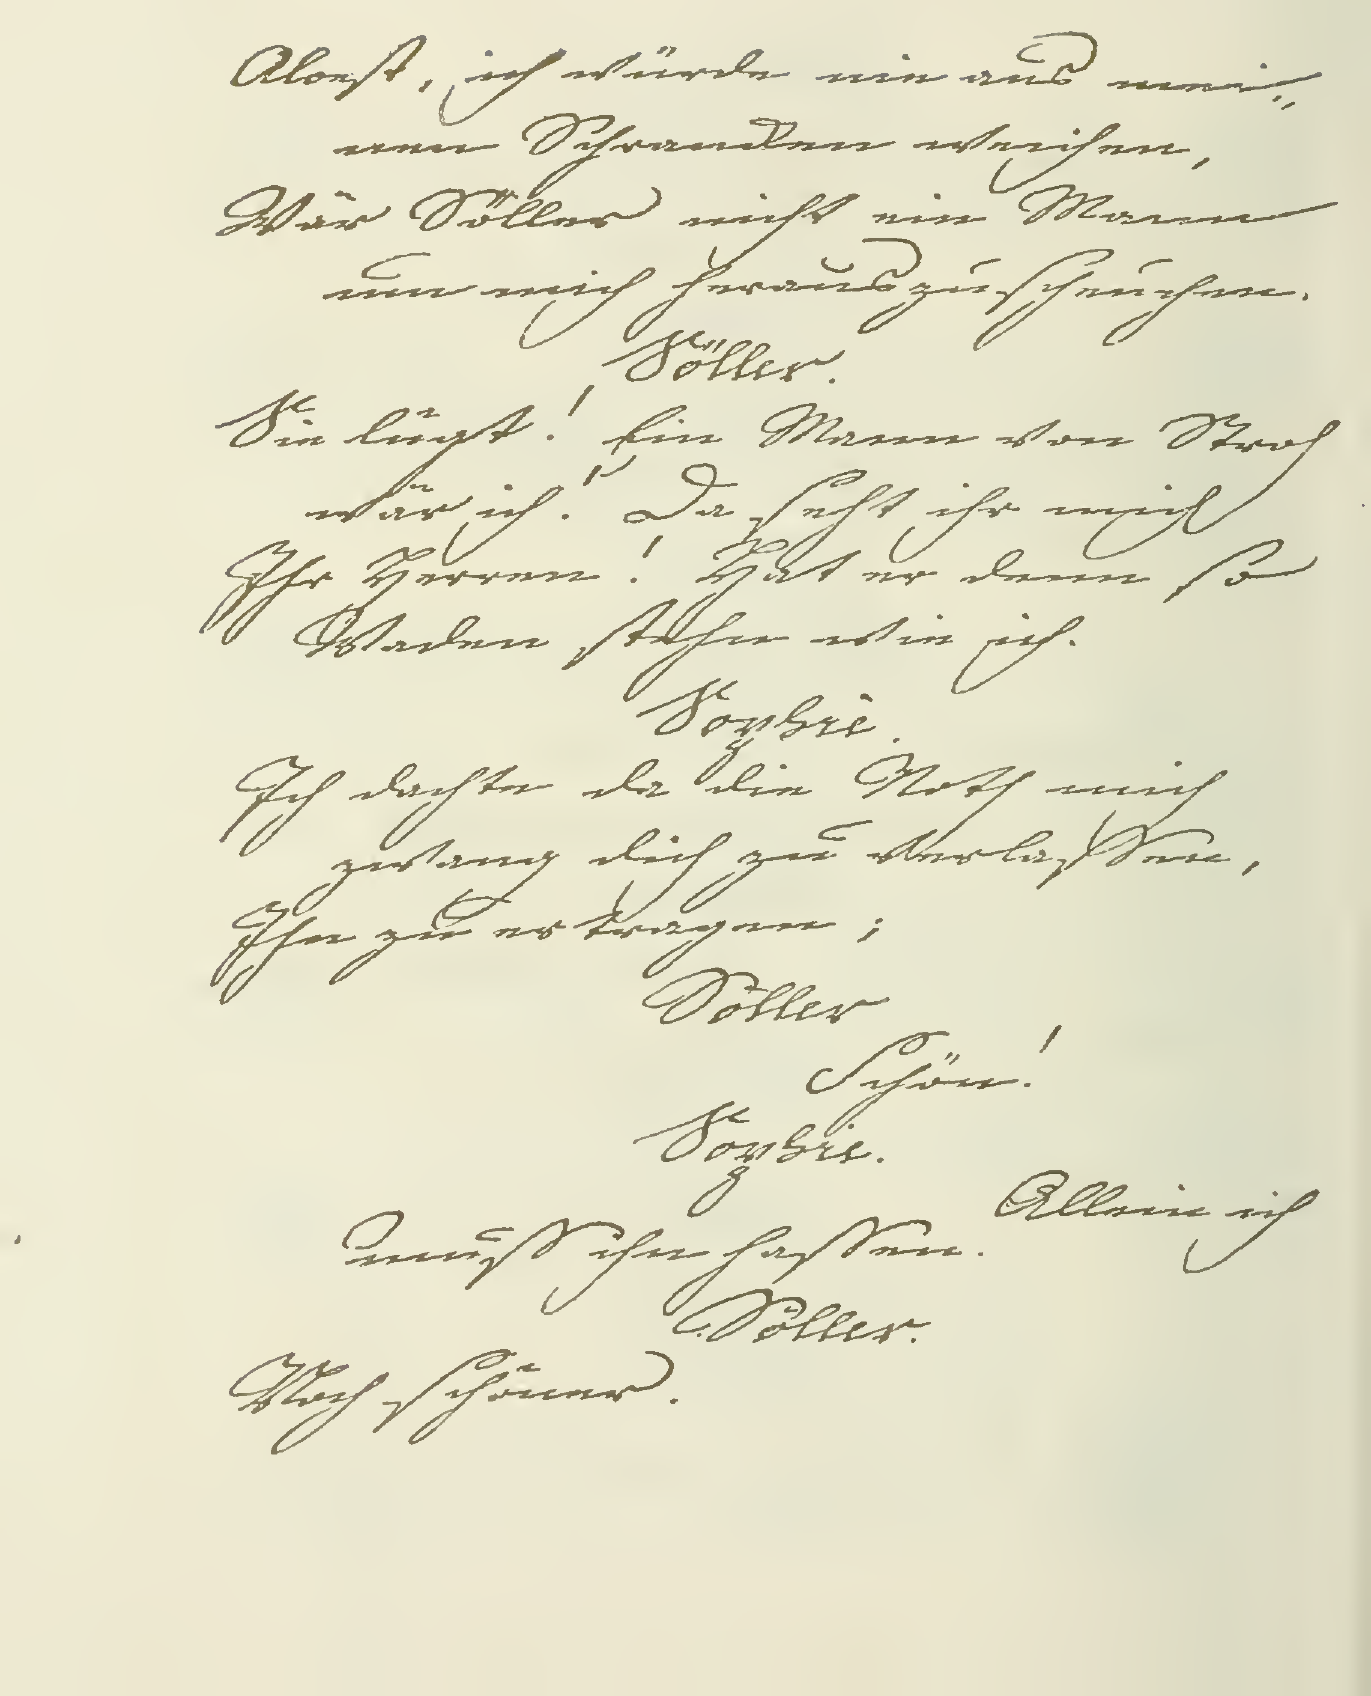 Alcest, ich würde nie aus mei„
nen Schranden weichen,
Wär Söller nicht ein Mann
um mich herauszuscheuchen.
Söller.
Sie lügt! Ein Mann von Stroh
wär ich! Da seht ihr mich
Ihr Herren! Hat er denn so
Waden stehn wie ich.
Sophie.
Ich dachte da die Noth mich
zwang dich zu verlassen,
Ihn zu ertragen;
Söller
Schön!
Sophie.
Allein ich
muss ihn hassen.
Söller.
Noch schöner.